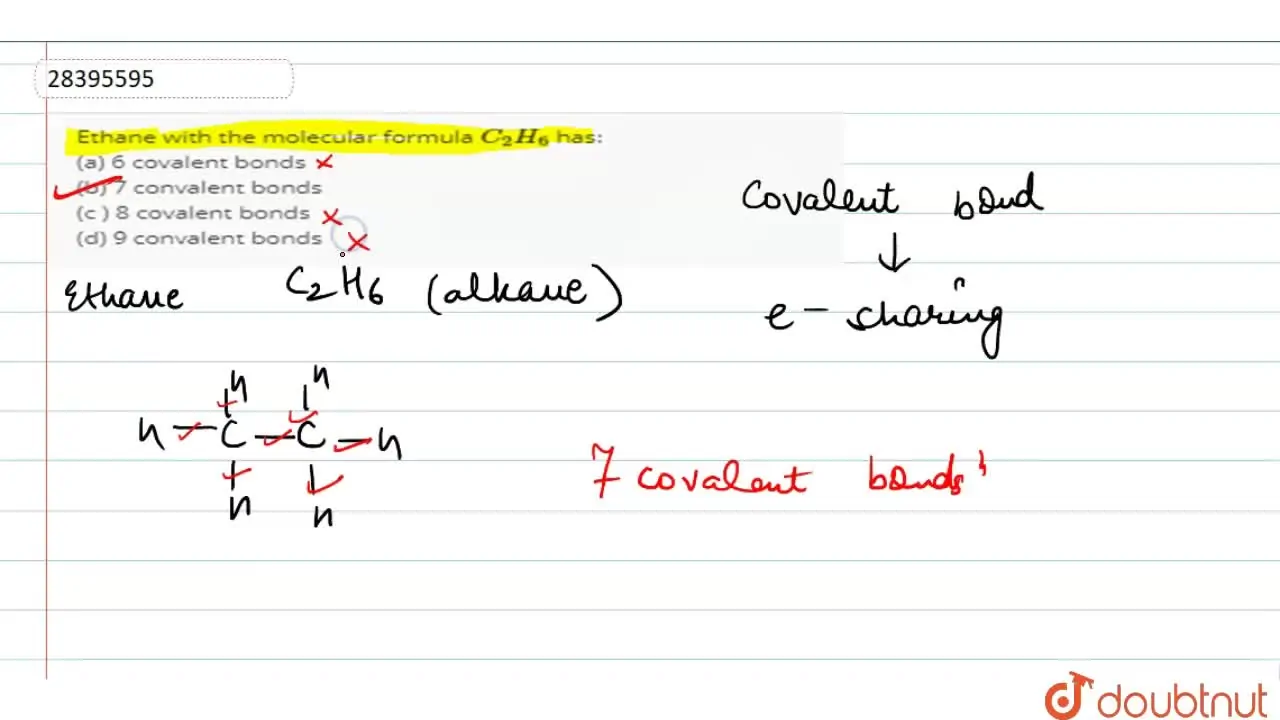 28395595
Ethane with the molecular formula C₂H₆ has:
(a) 6 covalent bonds ×
(b) 7 convalent bonds
(c ) 8 covalent bonds ×
(d) 9 convalent bonds ×
Covalent bond
↓
e- sharing
Ethane C₂H₆ (alkane)
H H
H — C — C — H
H H
7 covalent bonds
doubtnut